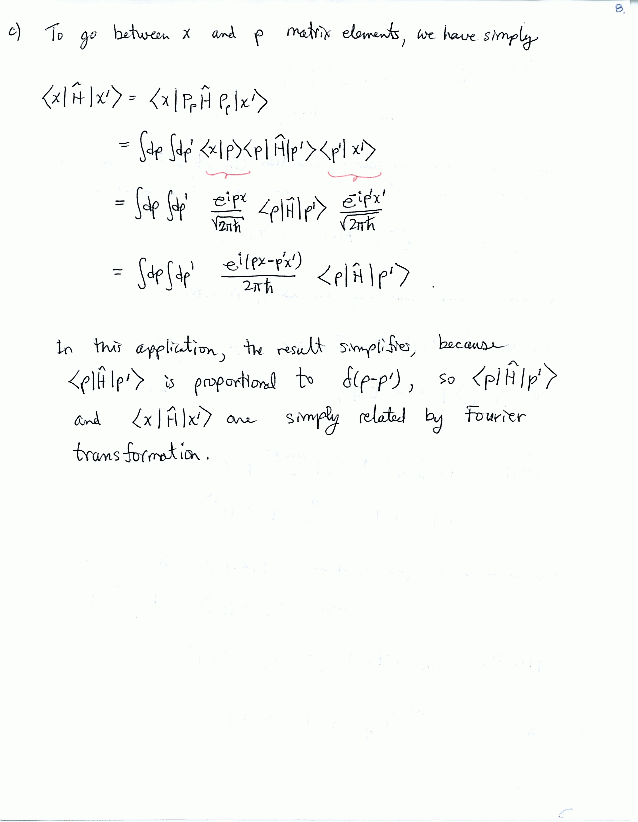 8.
c) To go between x and p matrix elements, we have simply
⟨x|Ĥ|x'⟩ = ⟨x|P_p Ĥ P_p|x'⟩
= ∫dp ∫dp' ⟨x|p⟩⟨p|Ĥ|p'⟩⟨p'|x'⟩
= ∫dp ∫dp' e^{ipx}/√(2πħ) ⟨p|Ĥ|p'⟩ e^{-ip'x'}/√(2πħ)
= ∫dp∫dp' e^{i(px-p'x')}/2πħ ⟨p|Ĥ|p'⟩ .
In this application, the result simplifies, because
⟨p|Ĥ|p'⟩ is proportional to δ(p-p'), so ⟨p|Ĥ|p'⟩
and ⟨x|Ĥ|x'⟩ are simply related by Fourier
transformation.